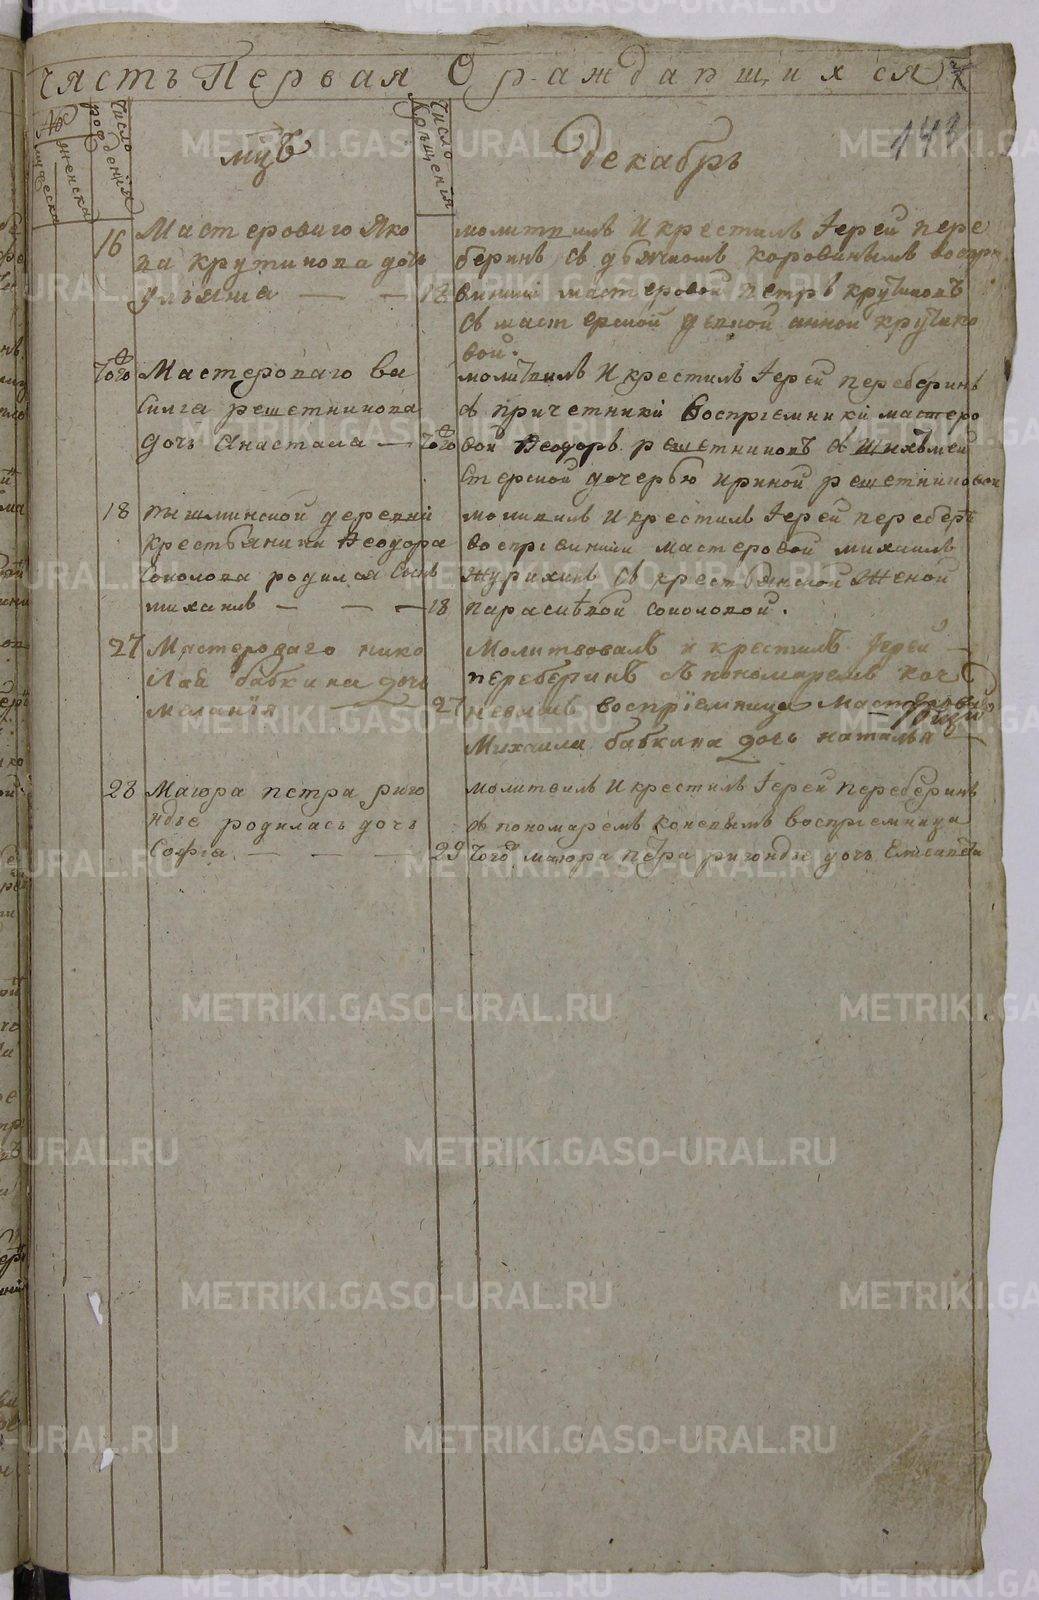 Часть Первая О раждапщихся
143
№
мужеска
женска
Число рождения
Число крещения
Декабрь
16 Мастероваго Яко
ва крутикова дочь
ульяна — — 18
молитвилъ И крестилъ Iерей пере
беринъ съ дьячкомъ коровинымъ воспри
емники мастеровой петръ крутиковъ
съ мастерской девкой анной крутико
вой.
того Мастероваго ва
силья решетникова
дочь Анастасia — того
молитвилъ И крестилъ Iерей переберинъ
съ причетники Воспрiемники мастеро
вой Феодоръ решетниковъ съ
стерской дочерью ириной решетниковой
18 пышминской деревни
крестьянина Феодора
соколова родился сынъ
михаилъ — — — 18
молитвилъ И крестилъ Iерей перебери
воспрiемники мастеровой михаилъ
журихинъ съ крестьянской Женой
параскѣвой соколовой.
27 Мастероваго нико
лай бабкина дочь
меланiя — 27
Молитвовалъ и крестилъ Iерей —
переберинъ съ пономаремъ кон
невымъ воспрiемница Мастероваго
Михаила бабкина дочь наталья —
28 Маiора петра риго
ндье родилась дочь
Софiа — — — 29
молитвилъ И крестилъ Iерей переберинъ
съ пономаремъ коневымъ воспрiемница
того маiора петра ригондье дочь Елисавета
METRIKI.GASO-URAL.RU